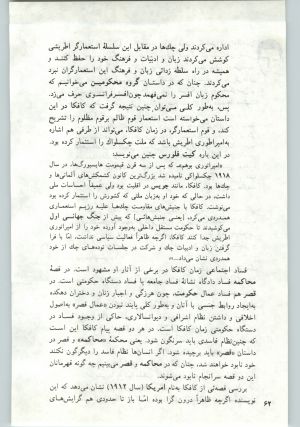 اداره می‌کردند ولی چك‌ها در مقابل این سلسلهٔ استعمارگر اطریشی
کوشش می‌کردند زبان و ادبیات و فرهنگ خود را حفظ کننـد و
همیشه در راه سلطه زدائی زبان و فرهنگ این استعمارگران نبرد
می‌کردند. چنان که در داستـان گروه محکومیـن می‌خوانیـم که
محکوم زبان افسر را نمی‌فهمد چون افسر فرانسوی حرف می‌زد.
پس، به‌طور کلی می‌توان چنین نتیجه گرفت که کافکا در این
داستان می‌خواسته است استعمار قوم ظالم بر قوم مظلوم را تشریح
کند، و قوم استعمارگر، در زمان کافکا، می‌تواند از طرفی هم اشاره
به امپراطوری اطریش باشد که ملت چکسلواك را استثمار کرده بود.
در این باره کیت فلورس چنین می‌نویسد:
«امپراتوری بوهم، که پس از سه قرن قیمومت هابسبورگ‌ها، در سال
۱۹۱۸ چکسلواکی نامیده شد بزرگ‌ترین کانون کشمکش‌های آلمانی‌ها و
چك‌ها بود. کافکا، مانند جویس در اقلیت بود ولی عمیقاً احساسات ملی
داشت، در حالی که خود او به‌زبان ملتی که کشورش را استثمار کرده بود
می‌نوشت. کافکا با جنبش‌های مقاومت چك‌ها علیه رژیـم استعماری
همدردی می‌کرد، (یعنی جنبش‌هائی) که پیش از جنگ جهانـی اول
می‌خواستند تا حکومت مستقل داخلی به‌وجود آورده خود را از امپراتوری
اطریش جدا کنند. کافکا، اگرچه ظاهراً فعالیت سیاسی نداشت، اما با فرا
گرفتن زبان و ادبیات چك و شرکت در جلسات توده‌های چك از خود
همدردی نشان می‌داد...»
فساد اجتماعی زمان کافکا در برخی از آثار او مشهود است. در قصهٔ
محاکمه فساد دادگاه نشانهٔ فساد جامعه یا فساد دستگاه حکومتی است. در
قصر هم فساد عمال حکومت، چون هرزگی و اجبار زنان و دختران دهکده
به‌ایجاد روابط جنسی با آنان و به‌طور کلی پایبند نبودن «عمال قصر» به‌اصول
اخلاقی و داشتن نظام اشرافی و دیوانسالاری، حاکی از وجود فسـاد در
دستگاه حکومتی زمان کافکا است. در هر دو قصه پیام کافکا این است
که چنین نظام فاسدی باید سرنگون شود. یعنی محکمهٔ «محاکمه» و قصر در
داستان «قصر» باید برچیده شود؛ اگر انسان‌ها نظام فاسد را دیگرگون نکنند
خود نابود خواهند شد، چنان که در محاکمه و قصر می‌بینیم چه گونه قهرمانان
این دو قصه سرانجام نابود می‌شوند.
بررسی قصه‌ئی از کافکا به‌نام امریکا (سال ۱۹۱۲) نشان می‌دهد که این
نویسنده اگرچه ظاهراً درون گرا بوده امّا باز تا حدودی هم گرایش‌های
۶۲